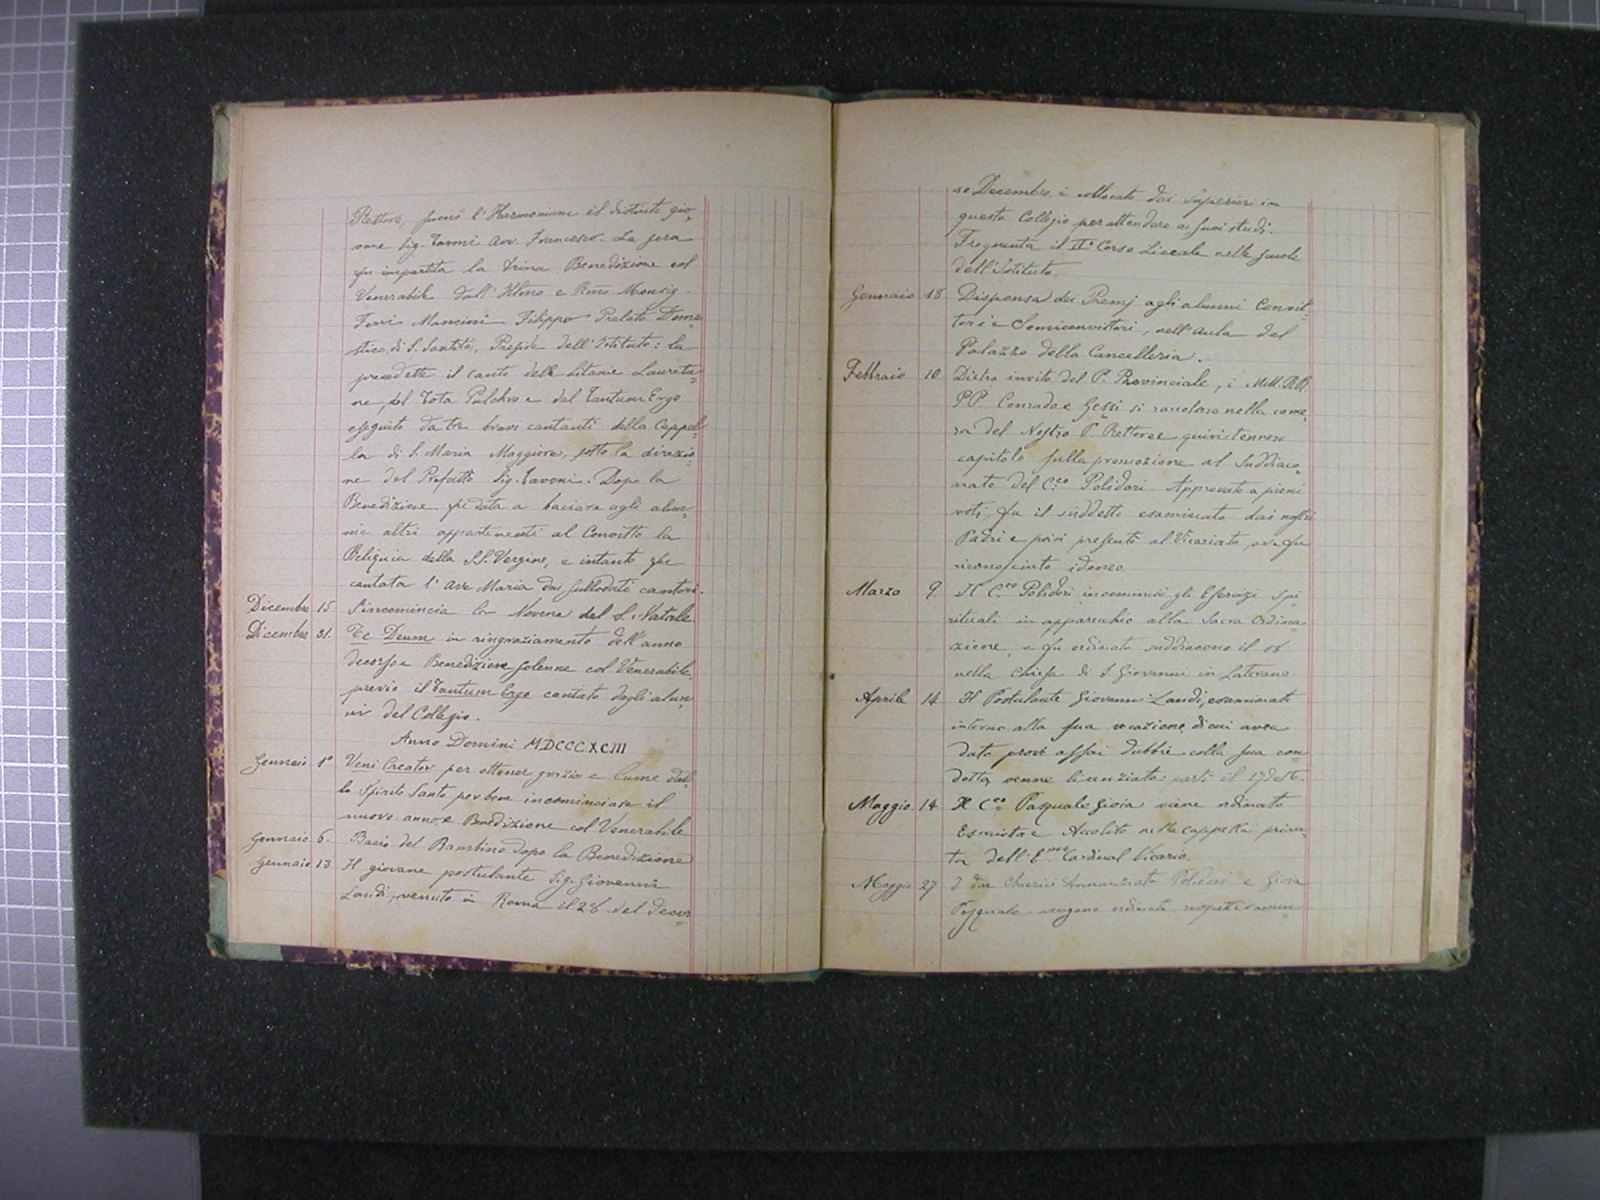 Rettore, suonò l'Harmonium il distinto gio-
vane Sig. Tavoni Avv. Francesco. La sera
fu impartita la trina Benedizione col
Venerabile dall'Illmo e Rmo Monsig.
Mancini Filippo Prelato Dome-
stico di S. Santità, Preside dell'Istituto: la
precedette il canto delle Litanie Laureta-
ne, del Tota Pulchra e del Tantum Ergo
eseguito da tre bravi cantanti della Cappel-
la di S. Maria Maggiore, sotto la direzio-
ne del Prefatto Sig. Tavoni. Dopo la
Benedizione fu data a baciare agli alun-
ni e altri appartenenti al Convitto la
Reliquia della SS. Vergine, e intanto fu
cantata l'Ave Maria dai sullodati cantori.
Dicembre 15 S'incomincia la Novena del S. Natale
Dicembre 31. Te Deum in ringraziamento dell'anno
decorso e Benedizione solenne col Venerabile,
previo il Tantum Ergo cantato dagli alun-
ni del Collegio.
Anno Domini MDCCCXCIII
Gennaio 1° Veni Creator per ottener grazia e lume dal-
lo Spirito Santo per bene incominciare il
nuovo anno, e Benedizione col Venerabile
Gennaio 6. Bacio del Bambino dopo la Benedizione
Gennaio 13. Il giovane postulante Sig. Giovanni
Landi, venuto in Roma il 28 del decor-
so Decembre, è collocato dai Superiori in
questo Collegio per attendere a' suoi studi.
Frequenta il II° Corso Liceale nelle scuole
dell'Istituto.
Gennaio 18 Dispensa dei Premj agli alunni Convit-
tori e Semiconvittori, nell'Aula del
Palazzo della Cancelleria.
Febbraio 10 Dietro invito del P. Provinciale, i MM. RR.
PP. Conrado e Gessi si raccolsero nella came-
ra del Nostro P. Rettore e quivi tennero
capitolo sulla promozione al Suddiaco-
nato del C.co Polidori. Approvato a pieni
voti, fu il suddetto esaminato dai nostri
Padri e poi presento al Vicariato, ove fu
riconosciuto idoneo.
Marzo 9. Il C.co Polidori incominciò gli Esercizi Spi-
rituali in apparecchio alla Sacra Ordina-
zione, e fu ordinato suddiacono il 18
nella Chiesa di S. Giovanni in Laterano
Aprile 14 Il Postulante Giovanni Landi, esaminato
intorno alla sua vocazione, di cui avea
dato prove assai dubbie colla sua con-
dotta, venne licenziato: partì il 17 dets.
Maggio 14 Il C.co Pasquale Gioia viene ordinato
Esorcista e Accolito nella cappella priva-
ta dell'Emo Cardinal Vicario.
Maggio 27 I due Chierici Annunziato Polidori e Gioia
Pasquale vengono ordinati rispettivamen-